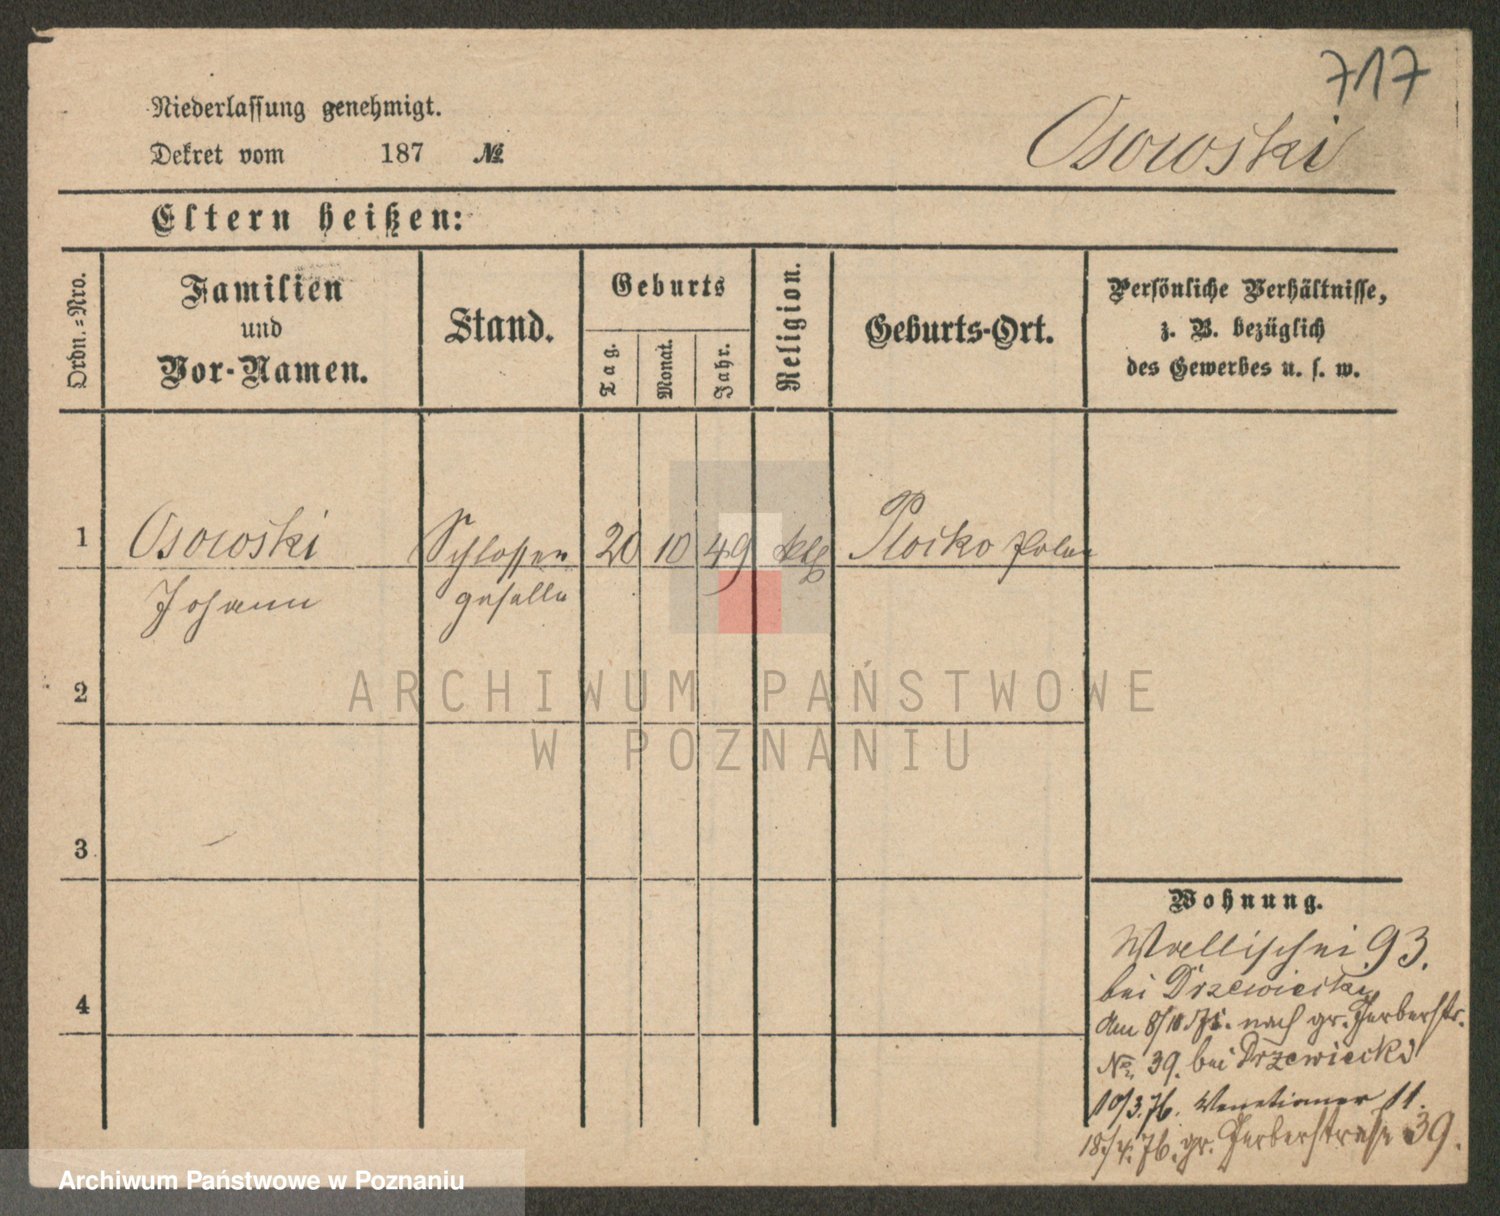 717
Niederlassung genehmigt.
Osowski
Dekret vom 187 №
Eltern heißen:
Ordn.=Nro.
Familien
und
Vor-Namen.
Stand.
Geburts
Tag.
Monat.
Jahr.
Religion.
Geburts-Ort.
Persönliche Verhältnisse,
z. B. bezüglich
des Gewerbes u. s. w.
1 Osowski Schlosser 20 10 49 kth Plocko Polen
Johann geselle
2
3
4
Wohnung.
Wallischei 93.
bei Drzewiecki
den 8/10 75. nach gr. Gerberstr.
No. 39. bei Drzewiecki
10/3.76. Venetianer 11.
18/4.76. gr. Gerberstraße 39.
ARCHIWUM PAŃSTWOWE
W POZNANIU
Archiwum Państwowe w Poznaniu